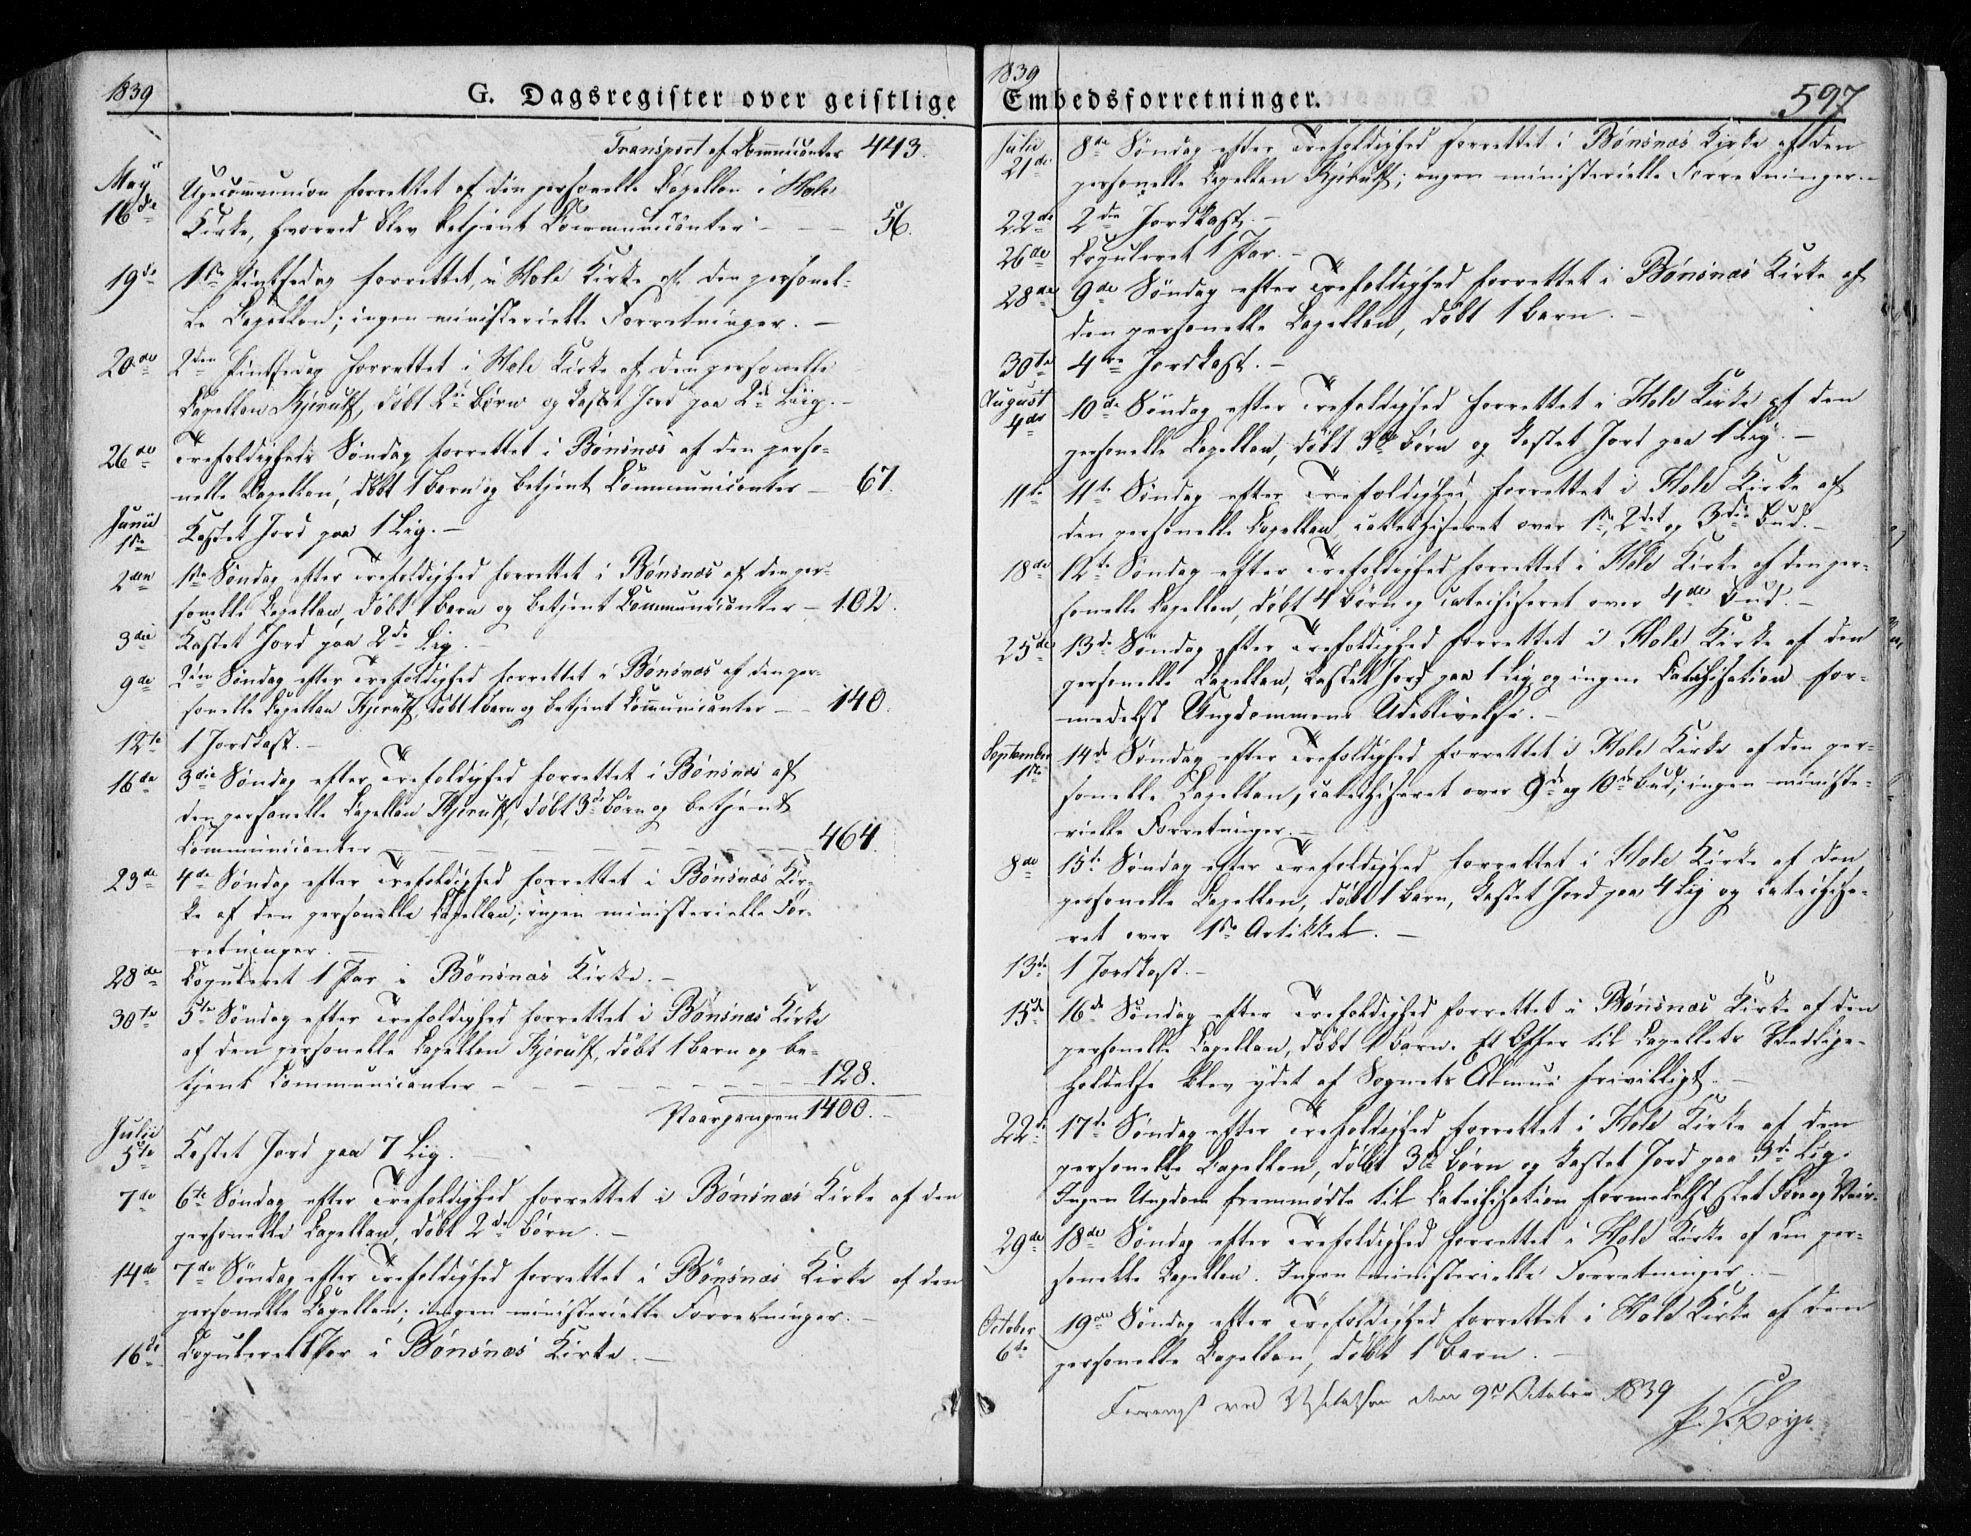 1839
G. Dagsregister over geistlige
Transport af Communicanter 443.
May
16de
Ugecommunion forrettet af den personelle Capellan i Hole
Kirke, hvorved blev betjent Communicanter - - - 56.
19de 1ste Pintsedag forrettet i Hole Kirke af den personel-
le Capellan; ingen ministerielle Forretninger. -
20de 2den Pintsedag forrettet i Hole Kirke af den personelle
Capellan Kjerulf, døbt 2de Børn og kastet Jord paa 2de Liig. -
26de Trefoldigheds Søndag forrettet i Bønsnæs af den perso-
nelle Capellan, døbt 1 Barn og betjent Communicanter - 67.
Junii
1ste Kastet Jord paa 1 Lig. -
2den 1ste Søndag efter Trefoldighed forrettet i Bønsnæs af den per-
sonelle Capellan, døbt 1 Barn og betjent Communicanter - 102.
3die Kastet Jord paa 2de Lig. -
9de 2den Søndag efter Trefoldighed forrettet i Bønsnæs af den per-
sonelle Capellan Kjerulf, døbt 1 Barn og betjent Communicanter - - 140.
12te 1 Jordkast. -
16de 3die Søndag efter Trefoldighed forrettet i Bønsnæs af
den personelle Capellan Kjerulf, døbt 3de Børn og betjent
Communicanter - - - - - - - 464.
23de 4de Søndag efter Trefoldighed forrettet i Bønsnæs Kir-
ke af den personelle Capellan; ingen ministerielle For-
retninger. -
28de Copuleret 1 Par i Bønsnæs Kirke. -
30te 5te Søndag efter Trefoldighed forrettet i Bønsnæs Kirke
af den personelle Capellan Kjerulf, døbt 1 Barn og be-
tjent Communicanter - - - - - - 128.
1400. -
Julii
5te Kastet Jord paa 7 Lig. -
7de 6te Søndag efter Trefoldighed forrettet i Bønsnæs Kirke af den
personelle Capellan, døbt 2de Børn. -
14de 7de Søndag efter Trefoldighed forrettet i Bønsnæs Kirke af den
personelle Capellan; ingen ministerielle Forretninger. -
16de Copuleret 1 Par i Bønsnæs Kirke. -
1839
Embedsforretninger.
597
Julii
21de
8de Søndag efter Trefoldighed forrettet i Bønsnæs Kirke af den
personelle Capellan Kjerulf; ingen ministerielle Forretninger. -
22de 2de Jordkast. -
26de Copuleret 1 Par. -
28de 9de Søndag efter Trefoldighed forrettet i Bønsnæs Kirke af
den personelle Capellan, døbt 1 Barn. -
30te 4re Jordkast. -
August
4de
10de Søndag efter Trefoldighed forrettet i Hole Kirke af den
personelle Capellan, døbt 3de Børn og kastet Jord paa 1 Lig. -
11te 11te Søndag efter Trefoldighed forrettet i Hole Kirke af
den personelle Capellan, catechiseret over 1ste, 2det og 3die Bud. -
18de 12te Søndag efter Trefoldighed forrettet i Hole Kirke af den per-
sonelle Capellan, døbt 4 Børn og catechiseret over 4de Bud. -
25de 13de Søndag efter Trefoldighed forrettet i Hole Kirke af den
personelle Capellan, kastet Jord paa 1 Lig og ingen Catechisation for-
medelst Ungdommens Udeblivelse. -
September
1ste
14de Søndag efter Trefoldighed forrettet i Hole Kirke af den per-
sonelle Capellan, catechiseret over 9de og 10de Bud; ingen ministe-
rielle Forretninger. -
8de 15de Søndag efter Trefoldighed forrettet i Hole Kirke af den
personelle Capellan, døbt 1 Barn, kastet Jord paa 4 Lig og catechise-
ret over 1ste Artikkel. -
13de 1 Jordkast. -
15de 16de Søndag efter Trefoldighed forrettet i Bønsnæs Kirke af den
personelle Capellan, døbt 1 Barn. Et Offer til Capellets Vedlige-
holdelse blev ydet af Sognets Almue frivilligt. -
22de 17de Søndag efter Trefoldighed forrettet i Hole Kirke af den
personelle Capellan, døbt 3de Børn og kastet Jord paa 3de Lig.
Ingen Ungdom fremmødte til Catechisation formedelst slet Føre og Veir.
29de 18de Søndag efter Trefoldighed forrettet i Hole Kirke af den per-
sonelle Capellan. Ingen ministerielle Forretninger. -
October
6te
19de Søndag efter Trefoldighed forrettet i Hole Kirke af den
personelle Capellan, døbt 1 Barn. -
ved den 9de October 1839